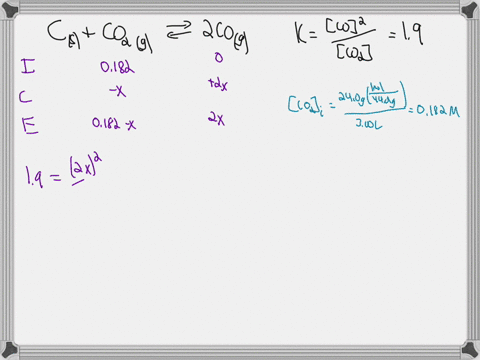 C(s) + CO2(g) ⇌ 2CO(g)
K = [CO]^2 / [CO2] = 1.9
I 0.182 0
C -x +2x
E 0.182-x 2x
[CO2]i = 24.0g (mol / 44.0g) / 3.00L = 0.182 M
1.9 = (2x)^2